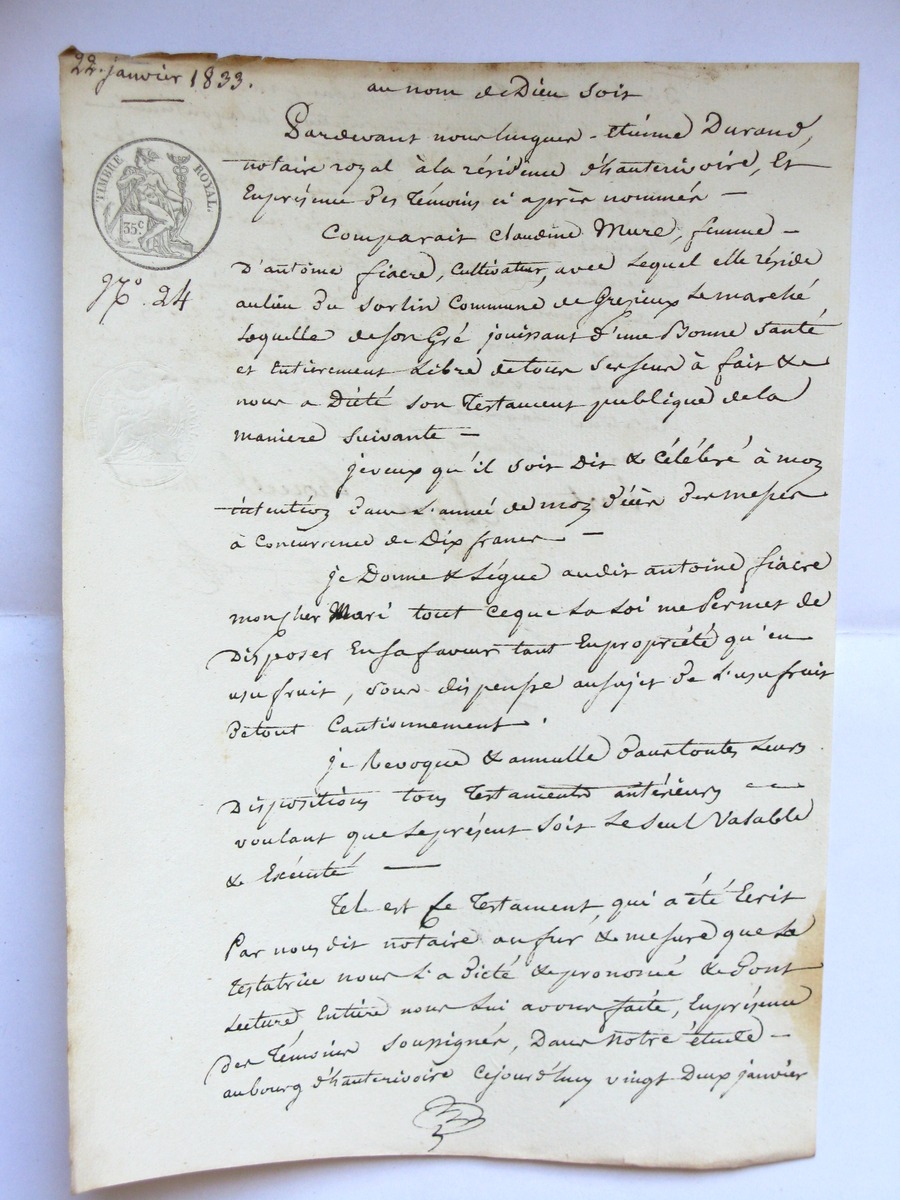 22. janvier 1833.
au nom de Dieu soit
TIMBRE ROYAL.
35c
N° 24
Pardevant nous hugues-etienne Durand,
notaire royal à la résidence d'hauterivoire, Et
En présence des Témoins ci après nommés —
Comparait Claudine Mure, femme —
D'antoine fiacre, Cultivateur, avec lequel elle réside
au lieu du Sorlin Commune de Grezieux Le marché
Laquelle de son Gré jouissant d'une Bonne santé
et Entierement Libre de tous ses sens à fait &
nous a Dicté son Testament publique de la
maniere suivante —
je veux qu'il soit Dit & Célébré à mon
intention dans L'année de mon décès des messes
à Concurrence de Dix francs —
je Donne & Légue audit antoine fiacre
mon cher Mari tout ce que La Loi me Permet de
Disposer En sa faveur tant En propriété qu'en
usufruit, sous dispense au sujet de L'usufruit
de tout Cautionnement.
je Revoque & annulle dans toutes leurs
Dispositions tous Testaments antérieurs —
voulant que le présent soit Le seul Valable
& Exécuté —
Tel est Le Testament qui a été Ecrit
Par nous dit notaire au fur & mesure que La
testatrice nous L'a dicté & prononcé & Dont
Lecture Entière nous Lui avons faite, En présence
des Témoins soussignés, Dans Notre étude —
au bourg d'hauterivoire Cejourd'huy vingt Deux janvier